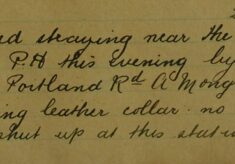 ed straying near the
P.H this evening by
Portland Rd A Mong
ing leather collar. no
shut up at this stati